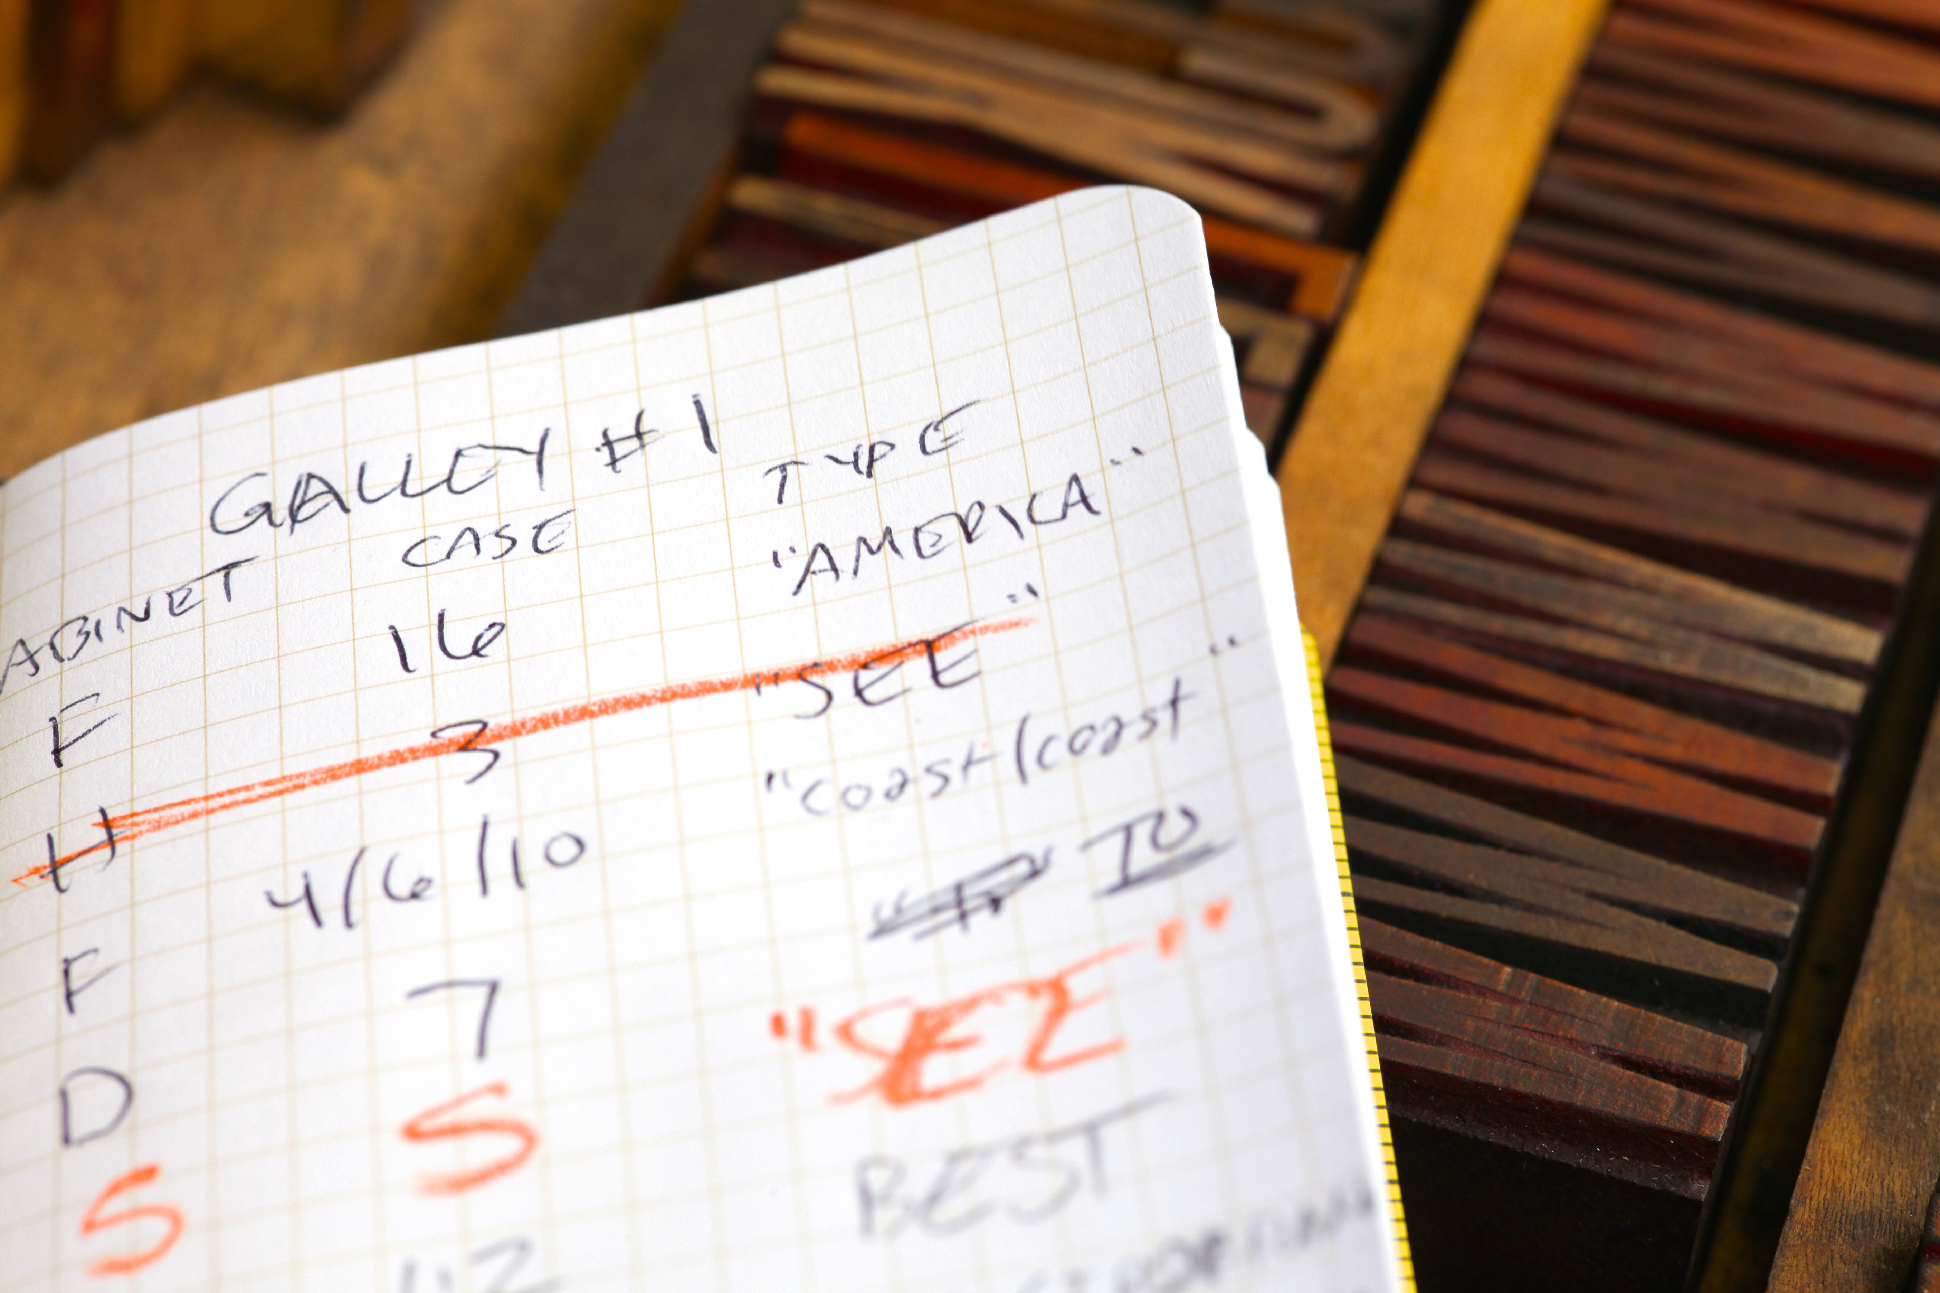 GALLEY #1
ABINET CASE TYPE
F 16 "AMERICA"
H 3 "SEE"
F 4/6/10 "coast/coast"
D 7 TO
S S "SEE"
BEST